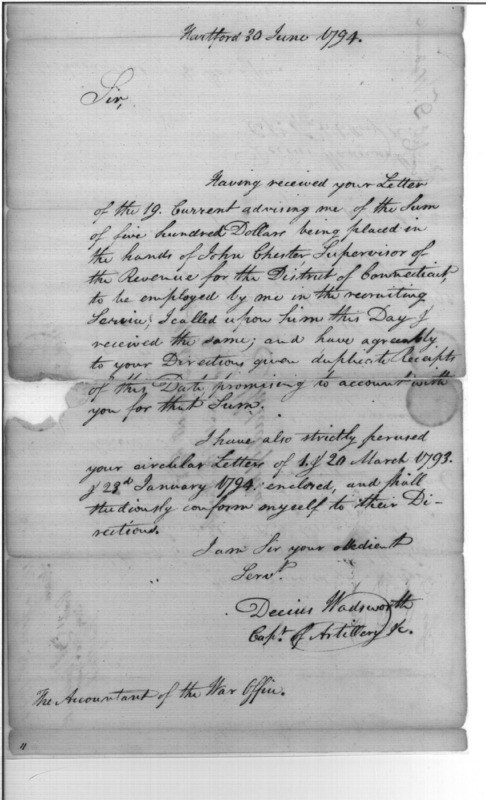 Hartford 30 June 1794.
Sir,
Having received your Letter
of the 19. Current advising me of the Sum
of five hundred Dollars being placed in
the hands of John Chester, Supervisor of
the Revenue for the District of Connecticut,
to be employed by me in the recruiting
Service; I called upon him this Day &
received the same; and have agreeably
to your Directions given duplicate Receipts
of this Date promising to account with
you for that Sum.
I have also strictly perused
your circular Letters of 1. & 20 March 1793.
& 23d January 1794. enclosed, and shall
studiously conform myself to their Di-
rections.
I am Sir your obedient
Servt.
Decius Wadsworth
Capt. of Artillery &c.
The Accountant of the War Office.